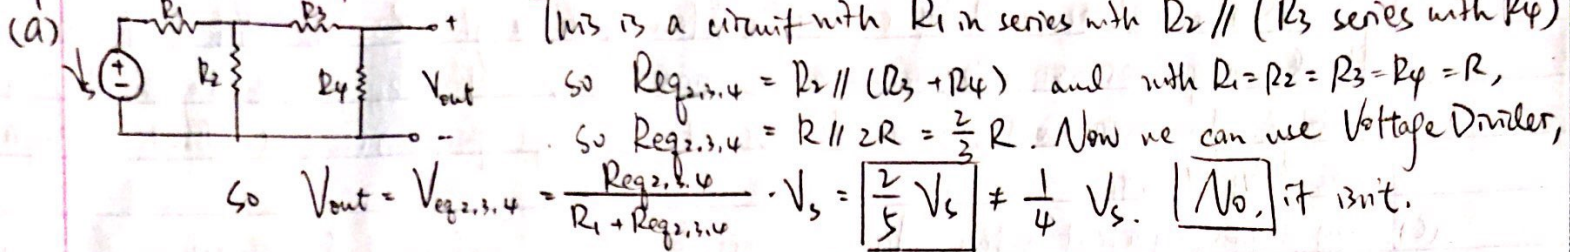 (a) R1 R3 + This is a circuit with R1 in series with R2 // (R3 series with R4)
Vs + - R2 R4 Vout so Req2,3,4 = R2 // (R3 + R4) and with R1 = R2 = R3 = R4 = R,
- so Req2,3,4 = R // 2R = 2/3 R. Now we can use Voltage Divider,
so Vout = Veq2,3,4 = Req2,3,4 / (R1 + Req2,3,4) · Vs = 2/5 Vs ≠ 1/4 Vs. No, it isn't.